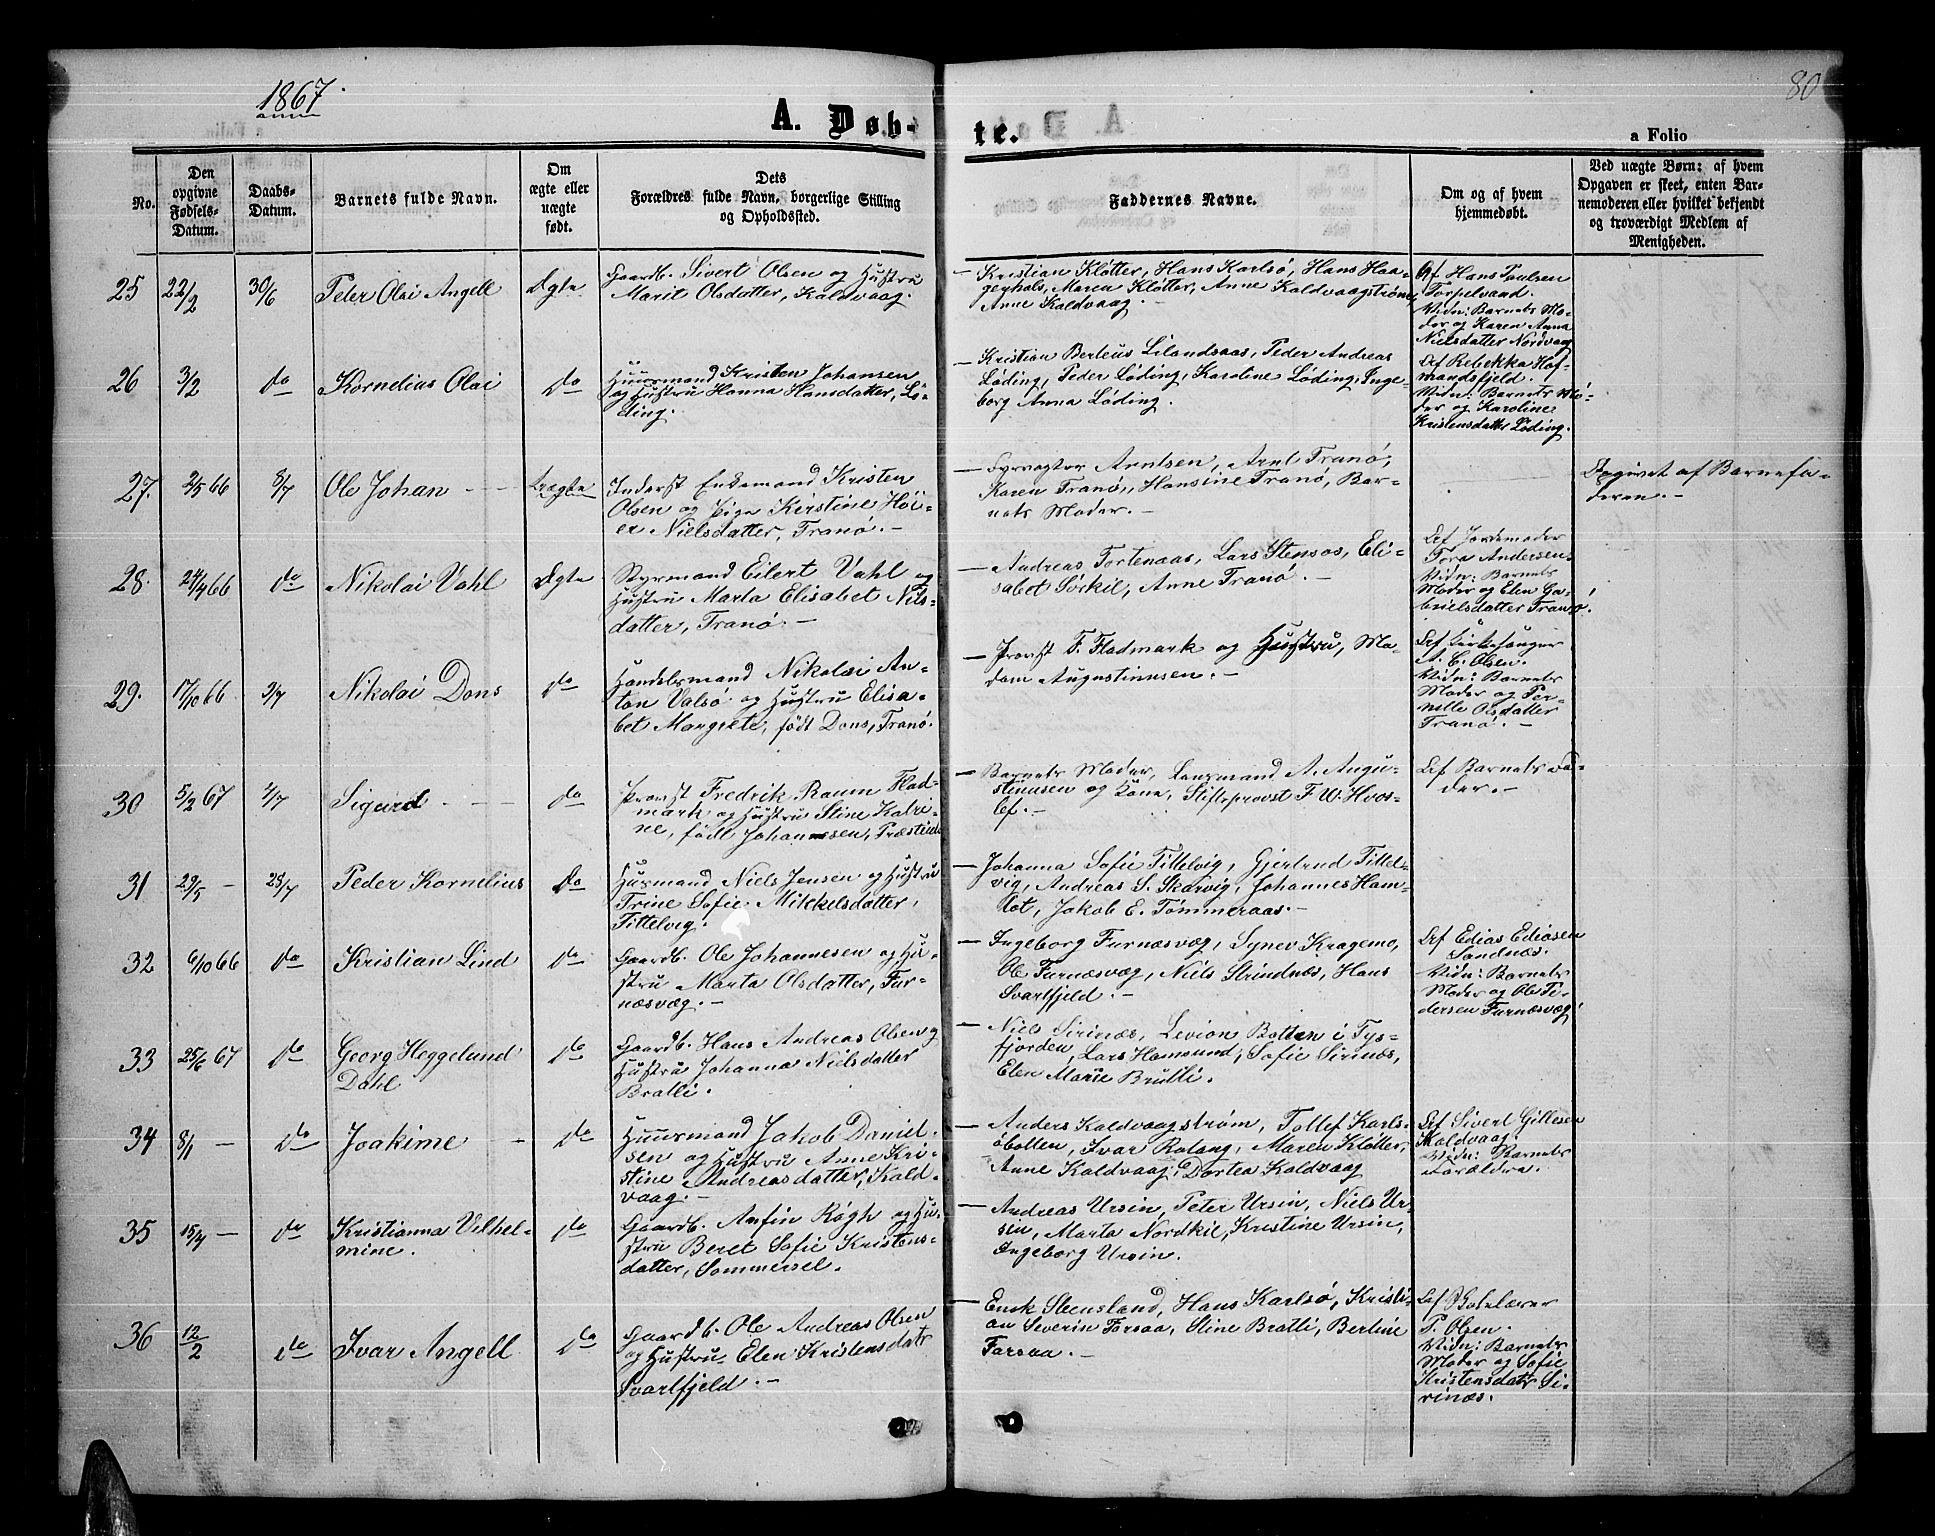 1867.
anno
80
A. Døb-
te.
a Folio
No.
Den
opgivne
Fødsels-
Datum.
Daabs-
Datum.
Barnets fulde Navn.
Om
ægte eller
uægte
født.
Dets
Forældres fulde Navn, borgerlige Stilling
og Opholdssted.
Faddernes Navne.
Om og af hvem
hjemmedøbt.
Ved uægte Børn: af hvem
Opgaven er skeet, enten Bar-
nemoderen eller hvilket bekjendt
og troværdigt Medlem af
Menigheden.
25 22/2 30/6 Peter Olai Angell Ægte
Gaardb. Sivert Olsen og Hustru
Marit Olsdatter, Kaldvaag.
— Kristian Kløtter, Hans Karlsø, Hans Haa-
geyhals, Maren Kløtter, Anne Kaldvaagstrøm,
Anne Kaldvaag. —
Af Hans Poulsen
Torpelvand.
Vidn: Barnets Mo-
der og Karen Anna
Nielsdatter Nordvaag
26 3/2 do Kornelius Olai do
Huusmand Kristen Johansen
og Hustru Hanna Hansdatter, Lø-
ding.
— Kristian Berteus Lilandsaas, Peder Andreas
Løding, Peder Løding, Karoline Løding, Inge-
borg Anna Løding.
Af Rebekka Hof-
mandsfjeld.
Vidn: Barnets Mo-
der og Karoline
Kristensdatter Løding.
27. 2/5 66 3/7 Ole Johan — Uægte
Inderst Enkemand Kristen
Olsen og Pige Kirstine Høi-
er Nielsdatter, Tranø. —
— Fyrvogter Arntsen, Arnt Tranø,
Karen Tranø, Hansine Tranø, Bar-
nets Moder. —
Opgivet af Barnefa-
deren. —
28. 24/4 66 do Nikolai Vahl Ægte
Styrmand Eilert Vahl og
Hustru Marta Elisabet Nils-
datter, Tranø. —
— Andreas Fortenaas, Lars Stensos, Eli-
sabet Sørkil, Anne Tranø. —
Af Jordemoder
Tora Andersen
Vidn: Barnets
Moder og Elen Ga-
brielsdatter Tranø.
29. 17/10 66 3/7 Nikolai Dons do
Handelsmand Nikolai An-
ton Valsø og Hustru Elisa-
bet Margrete, født Dons, Tranø.
— Provst F. Fladmark og Hustru, Ma-
dam Augustinusen. —
Af Kirkesanger
A. C. Olsen.
Vidn: Barnets
Moder og Per-
nille Olsdatter
Tranø. —
30 5/2 67 7/7 Sigurd — do
Provst Fredrik Raum Flad-
mark og Hustru Stine Katri-
ne, født Johannesen, Præsteid
— Barnets Moder, Lensmand A. Augu-
stinusen og Kone, Stiftsprovst F. W. Hvos-
lef. —
Af Barnets Fa-
der. —
31 29/5 — 28/7 Peder Kornelius do
Husmand Niels Jensen og Hustru
Trine Sofie Mikkelsdatter,
Tittelvig.
— Johanna Sofie Tittelvig, Gjertrud Tittel-
vig, Andreas S. Skarvig, Johannes Ham-
not, Jakob E. Tømmeraas. —
32 6/10 66 do Kristian Lind do
Gaardb. Ole Johannesen og Hu-
stru Marta Olsdatter, Fur-
næsvæg. —
— Ingeborg Furnæsvæg, Synev Kragemo,
Ole Furnæsvæg, Niels Strindnæs, Hans
Svartfjeld. —
Af Edias Ediasen
Sandnæs.
Vidn: Barnets
Moder og Ole Pe-
dersen Furnæsvæg
33 25/6 67 do Georg Heggelund do
Dahl
Gaardb. Hans Andreas Olsen og
Hustru Johanna Nielsdatter
Bratli.
— Niels Sirinæs, Levion Botten i Tys-
fjorden, Lars Hamsund, Sofie Sirinæs,
Elen Marie Brutli.
34 8/1 — do Joakime — do
Huusmand Jakob Daniel-
sen og Hustru Anne Kri-
stine Andreasdatter, Kald-
vaag. —
— Anders Kaldvaagstrøm, Tollef Karls-
øbotten, Ivar Rotang, Maren Kløtter,
Anne Kaldvaag, Dortea Kaldvaag
Af Sivert Gillesen
Kaldvaag.
Vidn: Barnets
Forældre.
35 15/4 — do Kristianna Vilhel- do
mine.
Gaardb. Anfin Røgh og Hu-
stru Beret Sofie Kristens-
datter, Sommersel.
— Andreas Ursin, Peter Ursin, Niels Ur-
sin, Marta Nordkil, Kristine Ursin,
Ingeborg Ursin.
36 12/2 do Ivar Angell do
Gaardb. Ole Andreas Olsen
og Hustru Elen Kristensdatr
Svartfjeld. —
— Enok Steensland, Hans Karlsø, Kristi-
an Severin Forsaa, Stine Bratli, Berline
Forsaa. —
Af Skolelærer
P. Olsen.
Vidn: Barnets
Moder og Sofie
Kristensdatr Si-
rinæs.